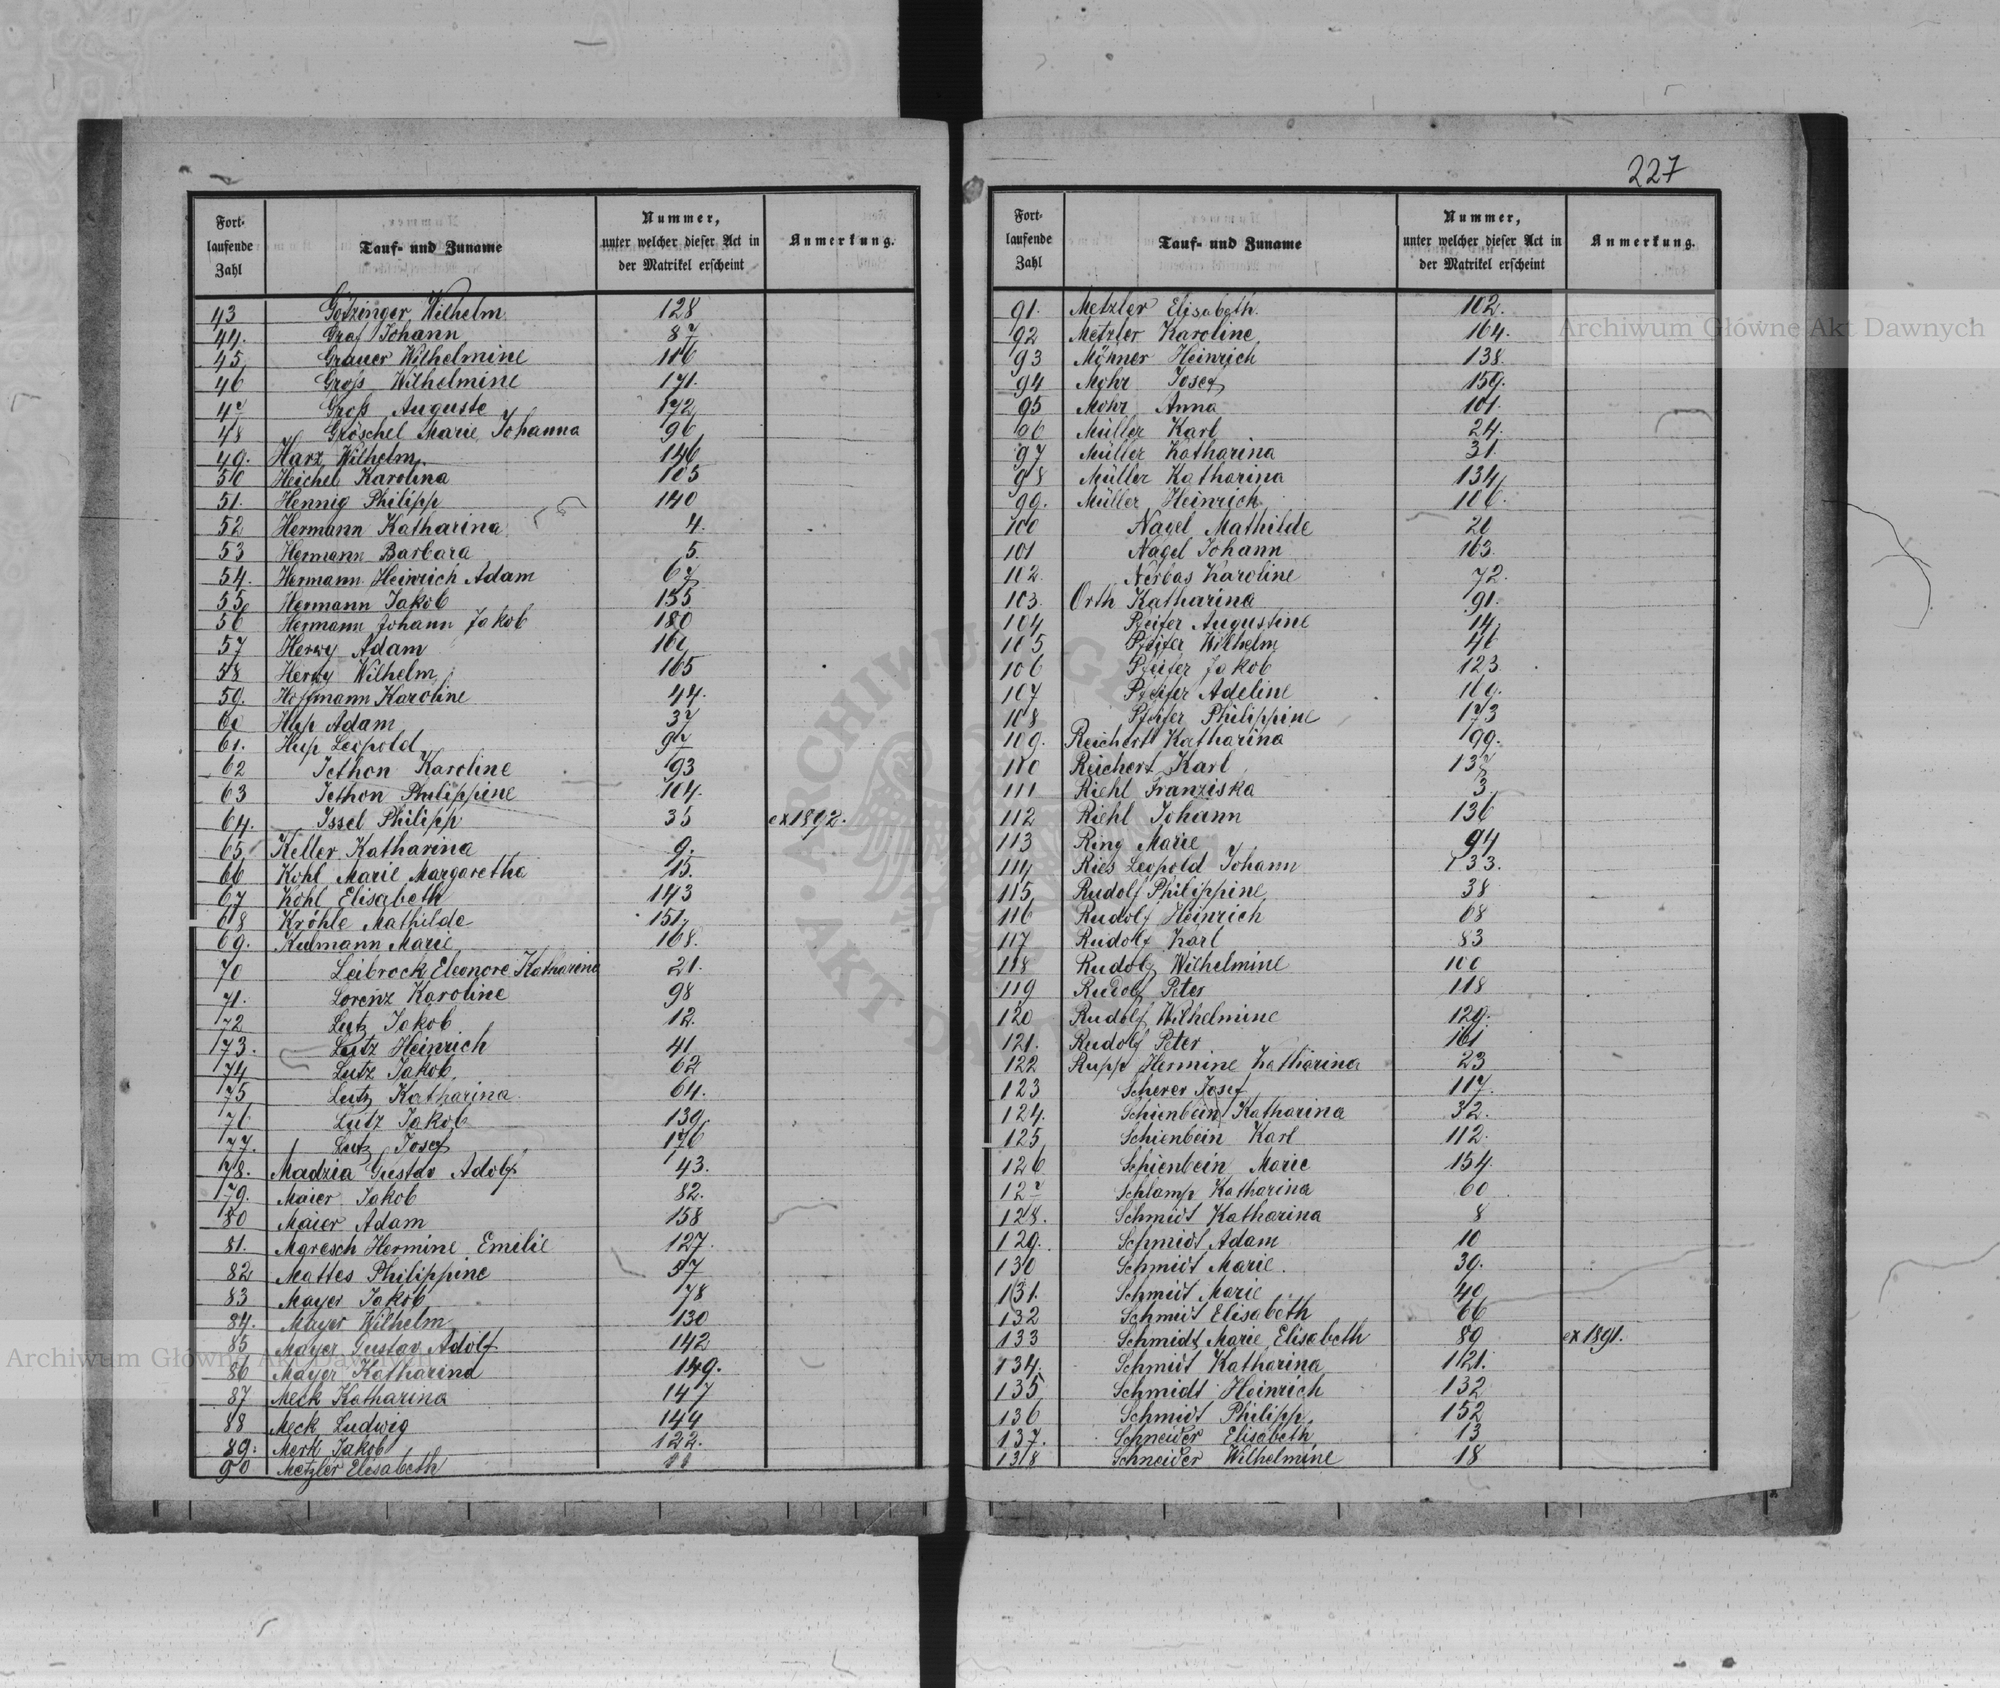 227
Fort-
laufende
Zahl
Tauf- und Zuname
Nummer,
unter welcher dieser Act in
der Matrikel erscheint
Anmerkung.
43 Götzinger Wilhelm 128
44. Graf Johann 87
45. Grauer Wilhelmine 116
46 Groß Wilhelmine 171.
47 Groß Auguste 172
48 Gröschel Marie Johanna 96
49. Harz Wilhelm 146
50 Heichel Karolina 105
51. Hennig Philipp 140
52 Hermann Katharina 4.
53 Hermann Barbara 5.
54. Hermann Heinrich Adam 67
55 Hermann Jakob 155
56 Hermann Johann Jakob 180
57 Herwy Adam 160
58 Herwy Wilhelm 165
59. Hoffmann Karoline 44.
60 Hup Adam 37
61. Hup Leopold 97
62 Jethon Karoline 93
63 Jethon Philippine 104.
64. Issel Philipp 35 ex 1892.
65 Keller Katharina 9.
66 Kohl Marie Margaretha 15.
67 Kohl Elisabeth 143
68 Kröhle Mathilde 151
69. Kulmann Marie 168.
70 Leibrock Eleonore Katharina 21.
71. Lorenz Karoline 98
72 Lutz Jakob 12.
73. Lutz Heinrich 41
74 Lutz Jakob 62
75 Lutz Katharina 64.
76 Lutz Jakob 139
77. Lutz Josef 176
78. Madzia Gustav Adolf 43.
79. Maier Jakob 82.
80 Maier Adam 158
81. Maresch Hermine Emilie 127.
82 Mattes Philippine 57
83 Mayer Jakob 78
84. Mayer Wilhelm 130
85 Mayer Gustav Adolf 142
86 Mayer Katharina 149.
87 Meck Katharina 147
88 Meck Ludwig 144
89. Merk Jakob 122.
90 Metzler Elisabeth 11
Fort-
laufende
Zahl
Tauf- und Zuname
Nummer,
unter welcher dieser Act in
der Matrikel erscheint
Anmerkung.
91. Metzler Elisabeth 102.
92 Metzler Karoline 164.
93 Möhner Heinrich 138.
94 Mohr Josef 159.
95 Mohr Anna 101.
96 Müller Karl 24.
97 Müller Katharina 31.
98 Müller Katharina 134
99. Müller Heinrich 106.
100 Nagel Mathilde 20
101 Nagel Johann 163.
102. Nerbas Karoline 72.
103. Orth Katharina 91.
104 Pfeifer Augustine 14
105 Pfeifer Wilhelm 46
106 Pfeifer Jakob 123
107 Pfeifer Adeline 169.
108 Pfeifer Philippine 173
109. Reichert Katharina 99.
110 Reichert Karl 137
111 Riehl Franziska 3
112 Riehl Johann 136
113 Ring Marie 94
114 Ries Leopold Johann 133.
115 Rudolf Philippine 38
116 Rudolf Heinrich 68
117 Rudolf Karl 83
118 Rudolf Wilhelmine 100
119 Rudolf Peter 118
120 Rudolf Wilhelmine 129.
121. Rudolf Peter 161
122 Rupp Hermine Katharina 23
123 Scherer Josef 117.
124. Schienbein Katharina 32.
125 Schienbein Karl 112.
126 Schienbein Marie 154.
127 Schlamp Katharina 60
128. Schmidt Katharina 8
129. Schmidt Adam 10
130 Schmidt Marie 39.
131. Schmidt Marie 40
132 Schmidt Elisabeth 66
133 Schmidt Marie Elisabeth 80 ex 1891.
134. Schmidt Katharina 121.
135 Schmidt Heinrich 132
136 Schmidt Philipp 152
137. Schneider Elisabeth 13
138 Schneider Wilhelmine 18
Archiwum Główne Akt Dawnych
Archiwum Główne Akt Dawnych